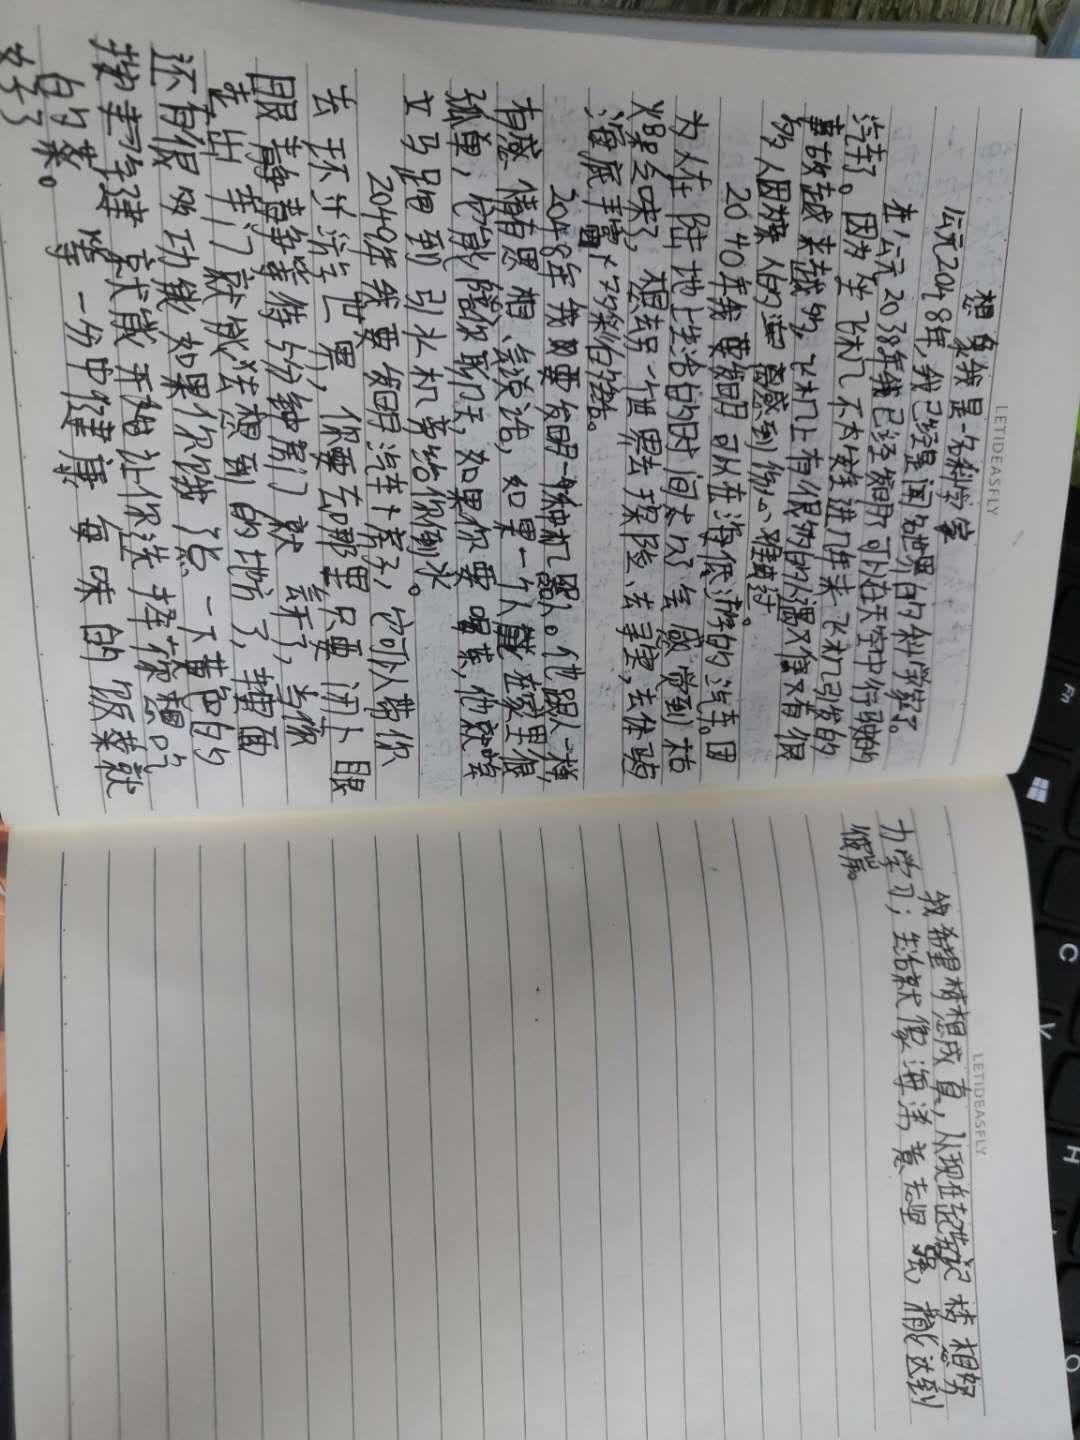 LETIDEASFLY
想象我是一名科学家
公元2048年,我已经是闻名世界的科学家了。
在公元2038年我已经发明了可以在天空中行驶的
汽车了。因为坐飞机不本安全进几年来飞机引发的
事故越来越多,飞机上有很多的人遇难又有很
多人因亲人的遇难感到伤心难过
2040年我要发明可从在海低游的汽车。因
为人在陆地上生活的因时间太久会感觉到枯
燥乏味了,想去另一个世界去探险、去寻宝,去体验
海底丰富×多彩的生活。
2048年我要发明一种机器人。他跟人一样
有感情思想、会说话,如果一个人就在家里很
孤单,他能陪你聊天,如果你要喝茶,他就能
立马跑到引水机旁给你倒水。
2049年我要发明汽车卡房子,它可以带你
去环游世界,你要去哪里只要闭上眼
眼静静等待5分钟阁门就讶了,当你
走出车门就能去想到的地方了,辅面
还有很多功能如果你饿了点一下黄色的
按耍键就能开始让你选择你想吃
的菜。等一分中健康每味的饭菜就
好了
LETIDEASFLY
我希望梦想成真,从现在起劳记梦想努
力学习;生活就像海洋,意志坚强,才能达到
彼岸。
C
V
H
Fn